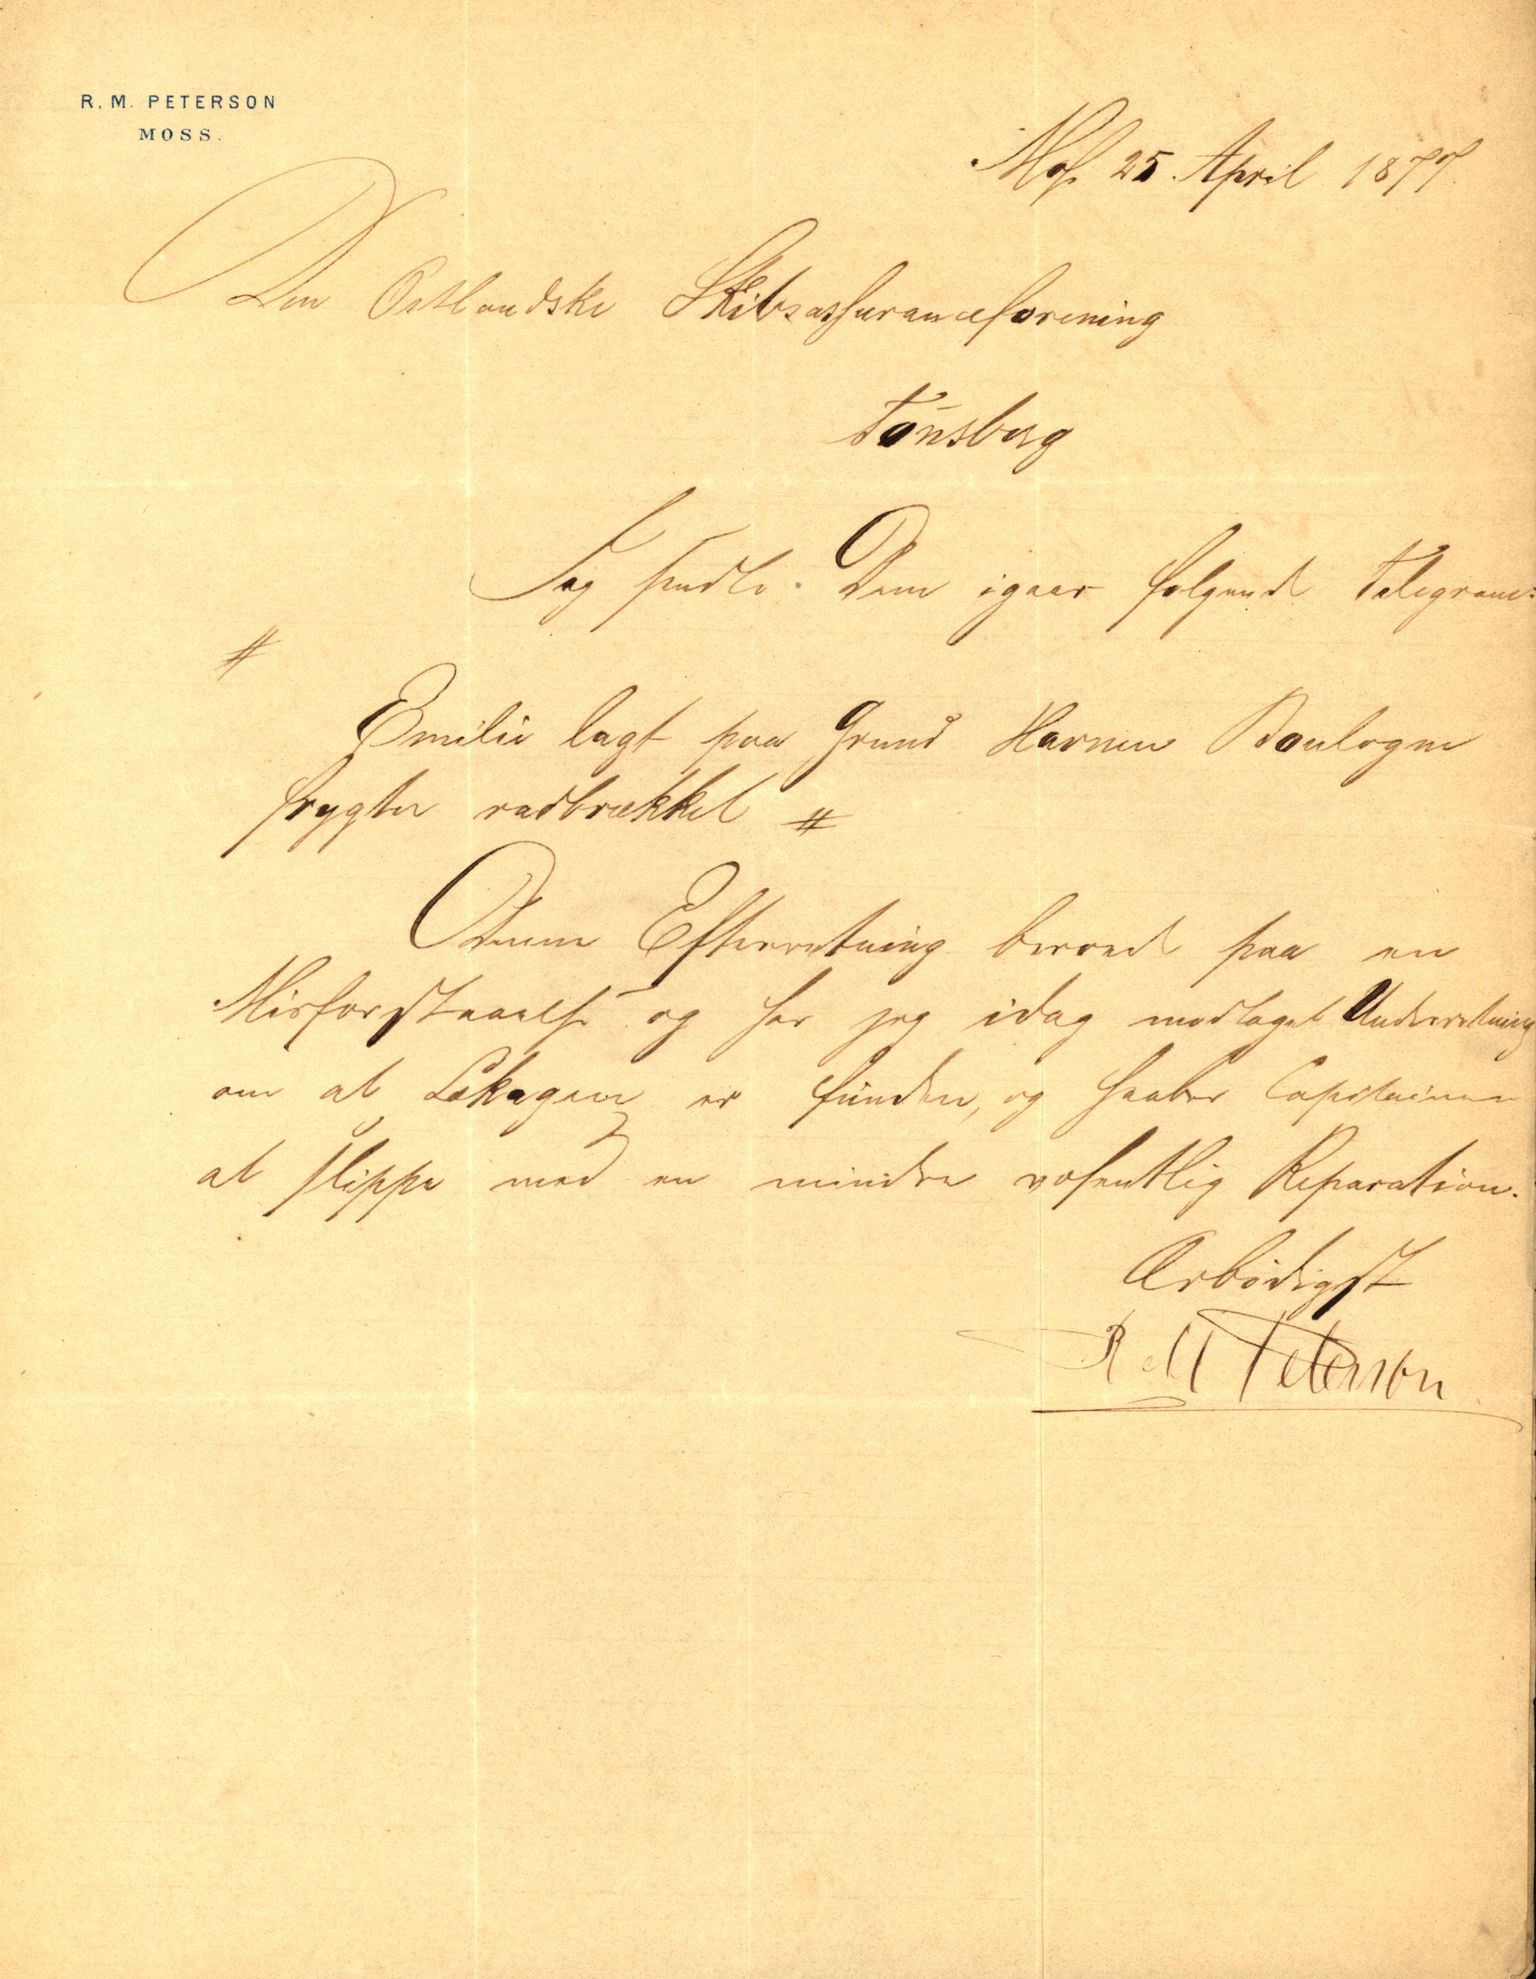 R. M. PETERSON
MOSS.
Moss 25 April 1877.
Den Östlandske Skibsassuranceforening
Tönsberg
Jeg sendte Dem igaar følgende Telegram:
#
Emilie lagt paa Grund Havnen Boulogne
frygter radbrækket #
Denne Efterretning beroede paa en
Misforstaaelse og har jeg idag modtaget Underretning
om at Lækagen er funden, og haaber Capitainen
at slippe med en mindre væsentlig Reparation.
Ærbödigst
R M Peterson